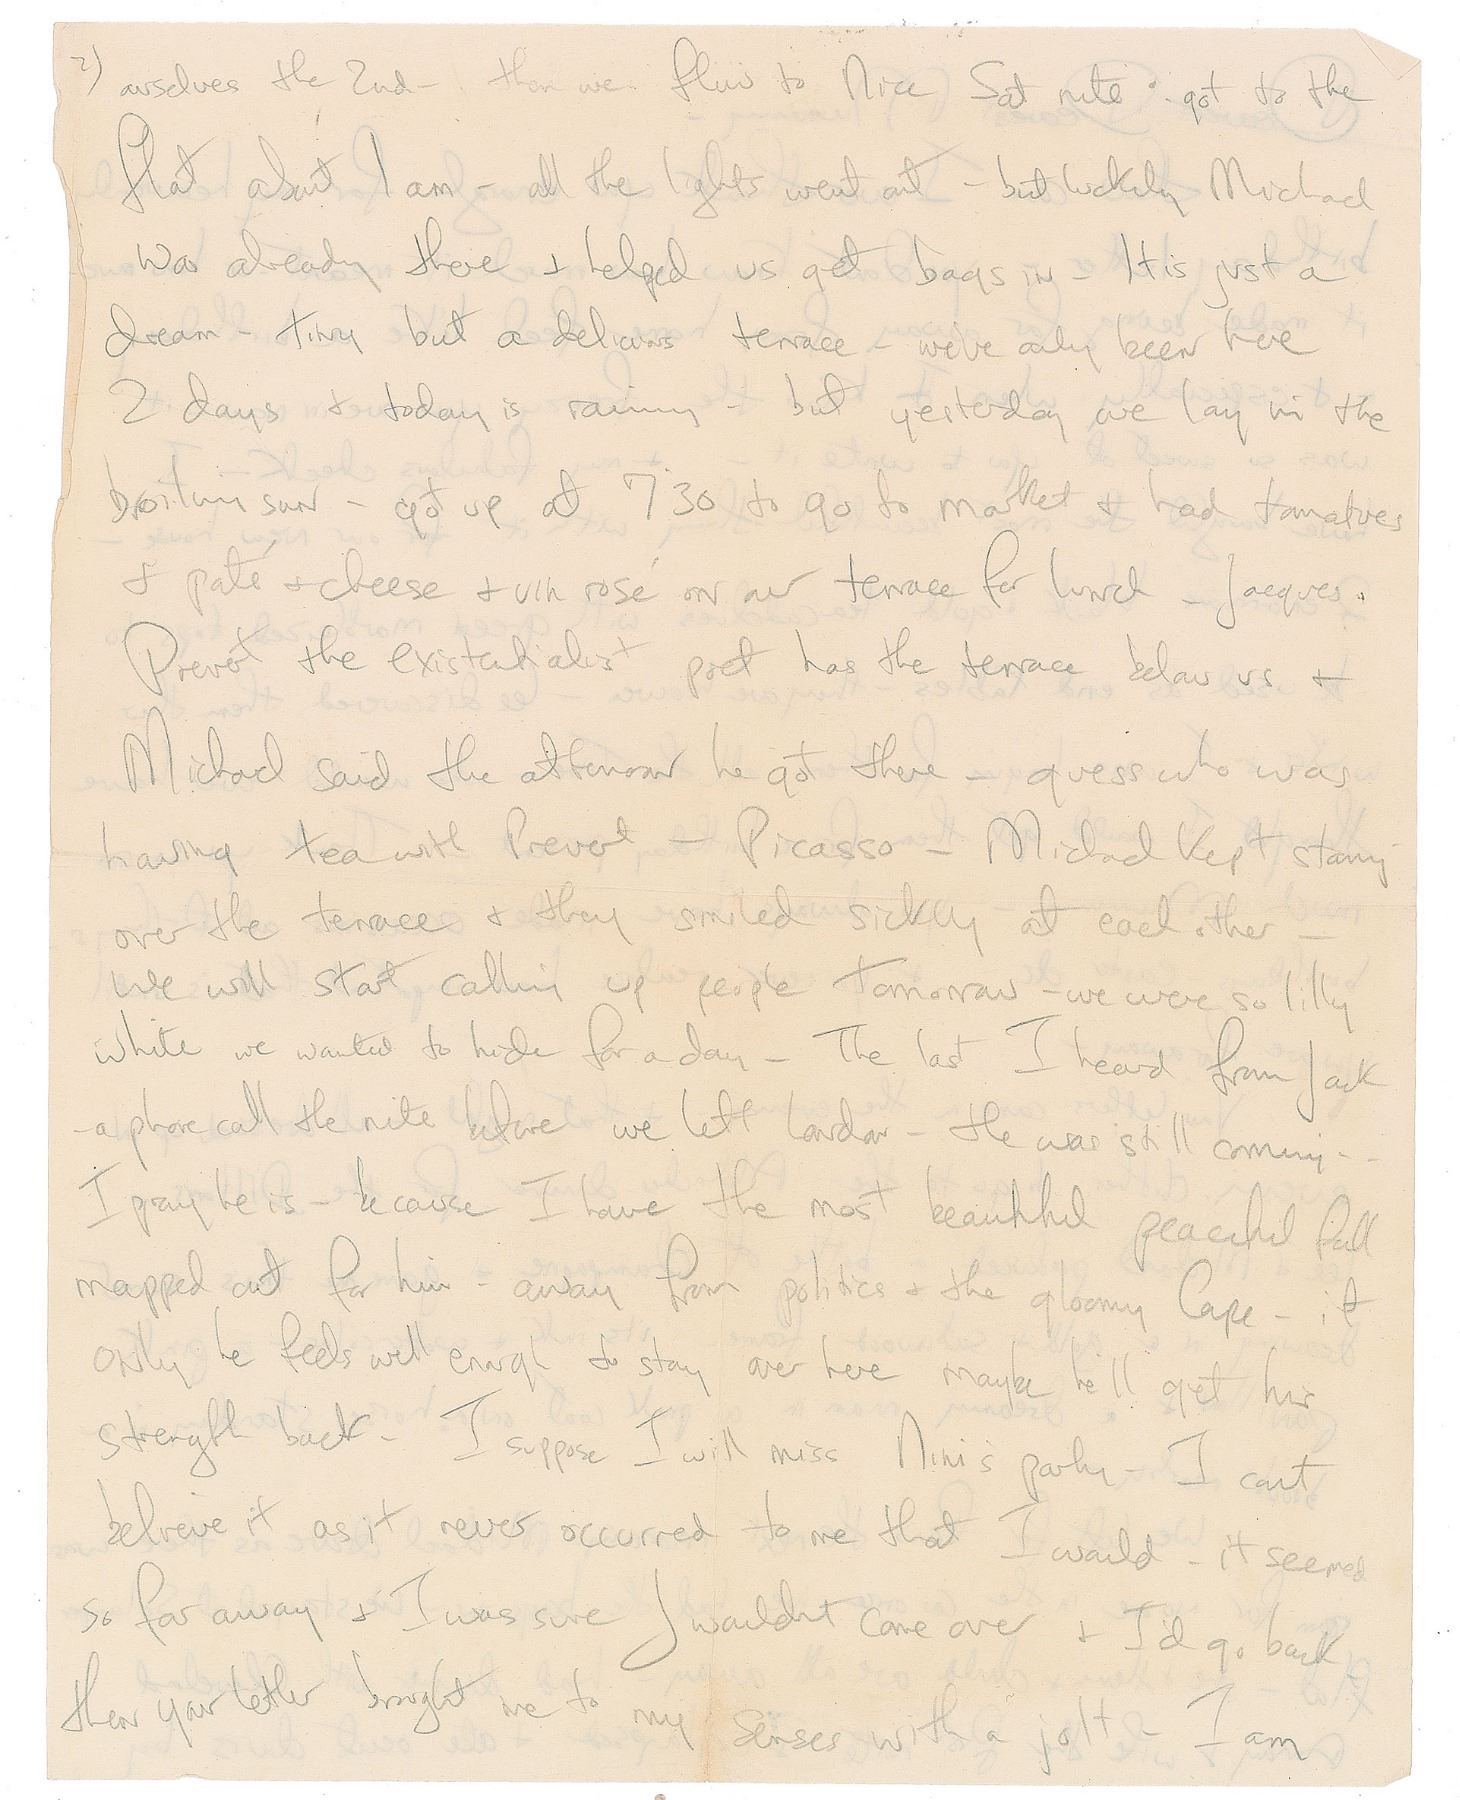 2) ourselves the 2nd - then we flew to Nice Sat nite . got to the
flat about 1 am - all the lights went out - but luckily Michael
was already there + helped us get bags in - It is just a
dream - tiny but a delicious terrace - we've only been here
2 days + today is rainy - but yesterday we lay in the
broiling sun - got up at 7 30 to go to market + had tomatoes
+ paté + cheese + vin rosé on our terrace for lunch - Jacques
Prevert the existentialist poet has the terrace below us +
Michael said the afternoon he got there - guess who was
having tea with Prevert - Picasso - Michael kept staring
over the terrace + they smiled sickly at each other -
We will start calling up people tomorrow - we were so lilly
white we wanted to hide for a day - The last I heard from Jack
- a phone call the nite before we left London - He was still coming - -
I pray he is - because I have the most beautiful peaceful fall
mapped out for him - away from politics + the gloomy Cape - if
only he feels well enough to stay over here maybe he'll get his
strength back - I suppose I will miss Nini's party - I cant
believe it as it never occurred to me that I would - it seemed
so far away + I was sure J wouldnt come over + I'd go back
then your letter brought me to my senses with a jolt - I am